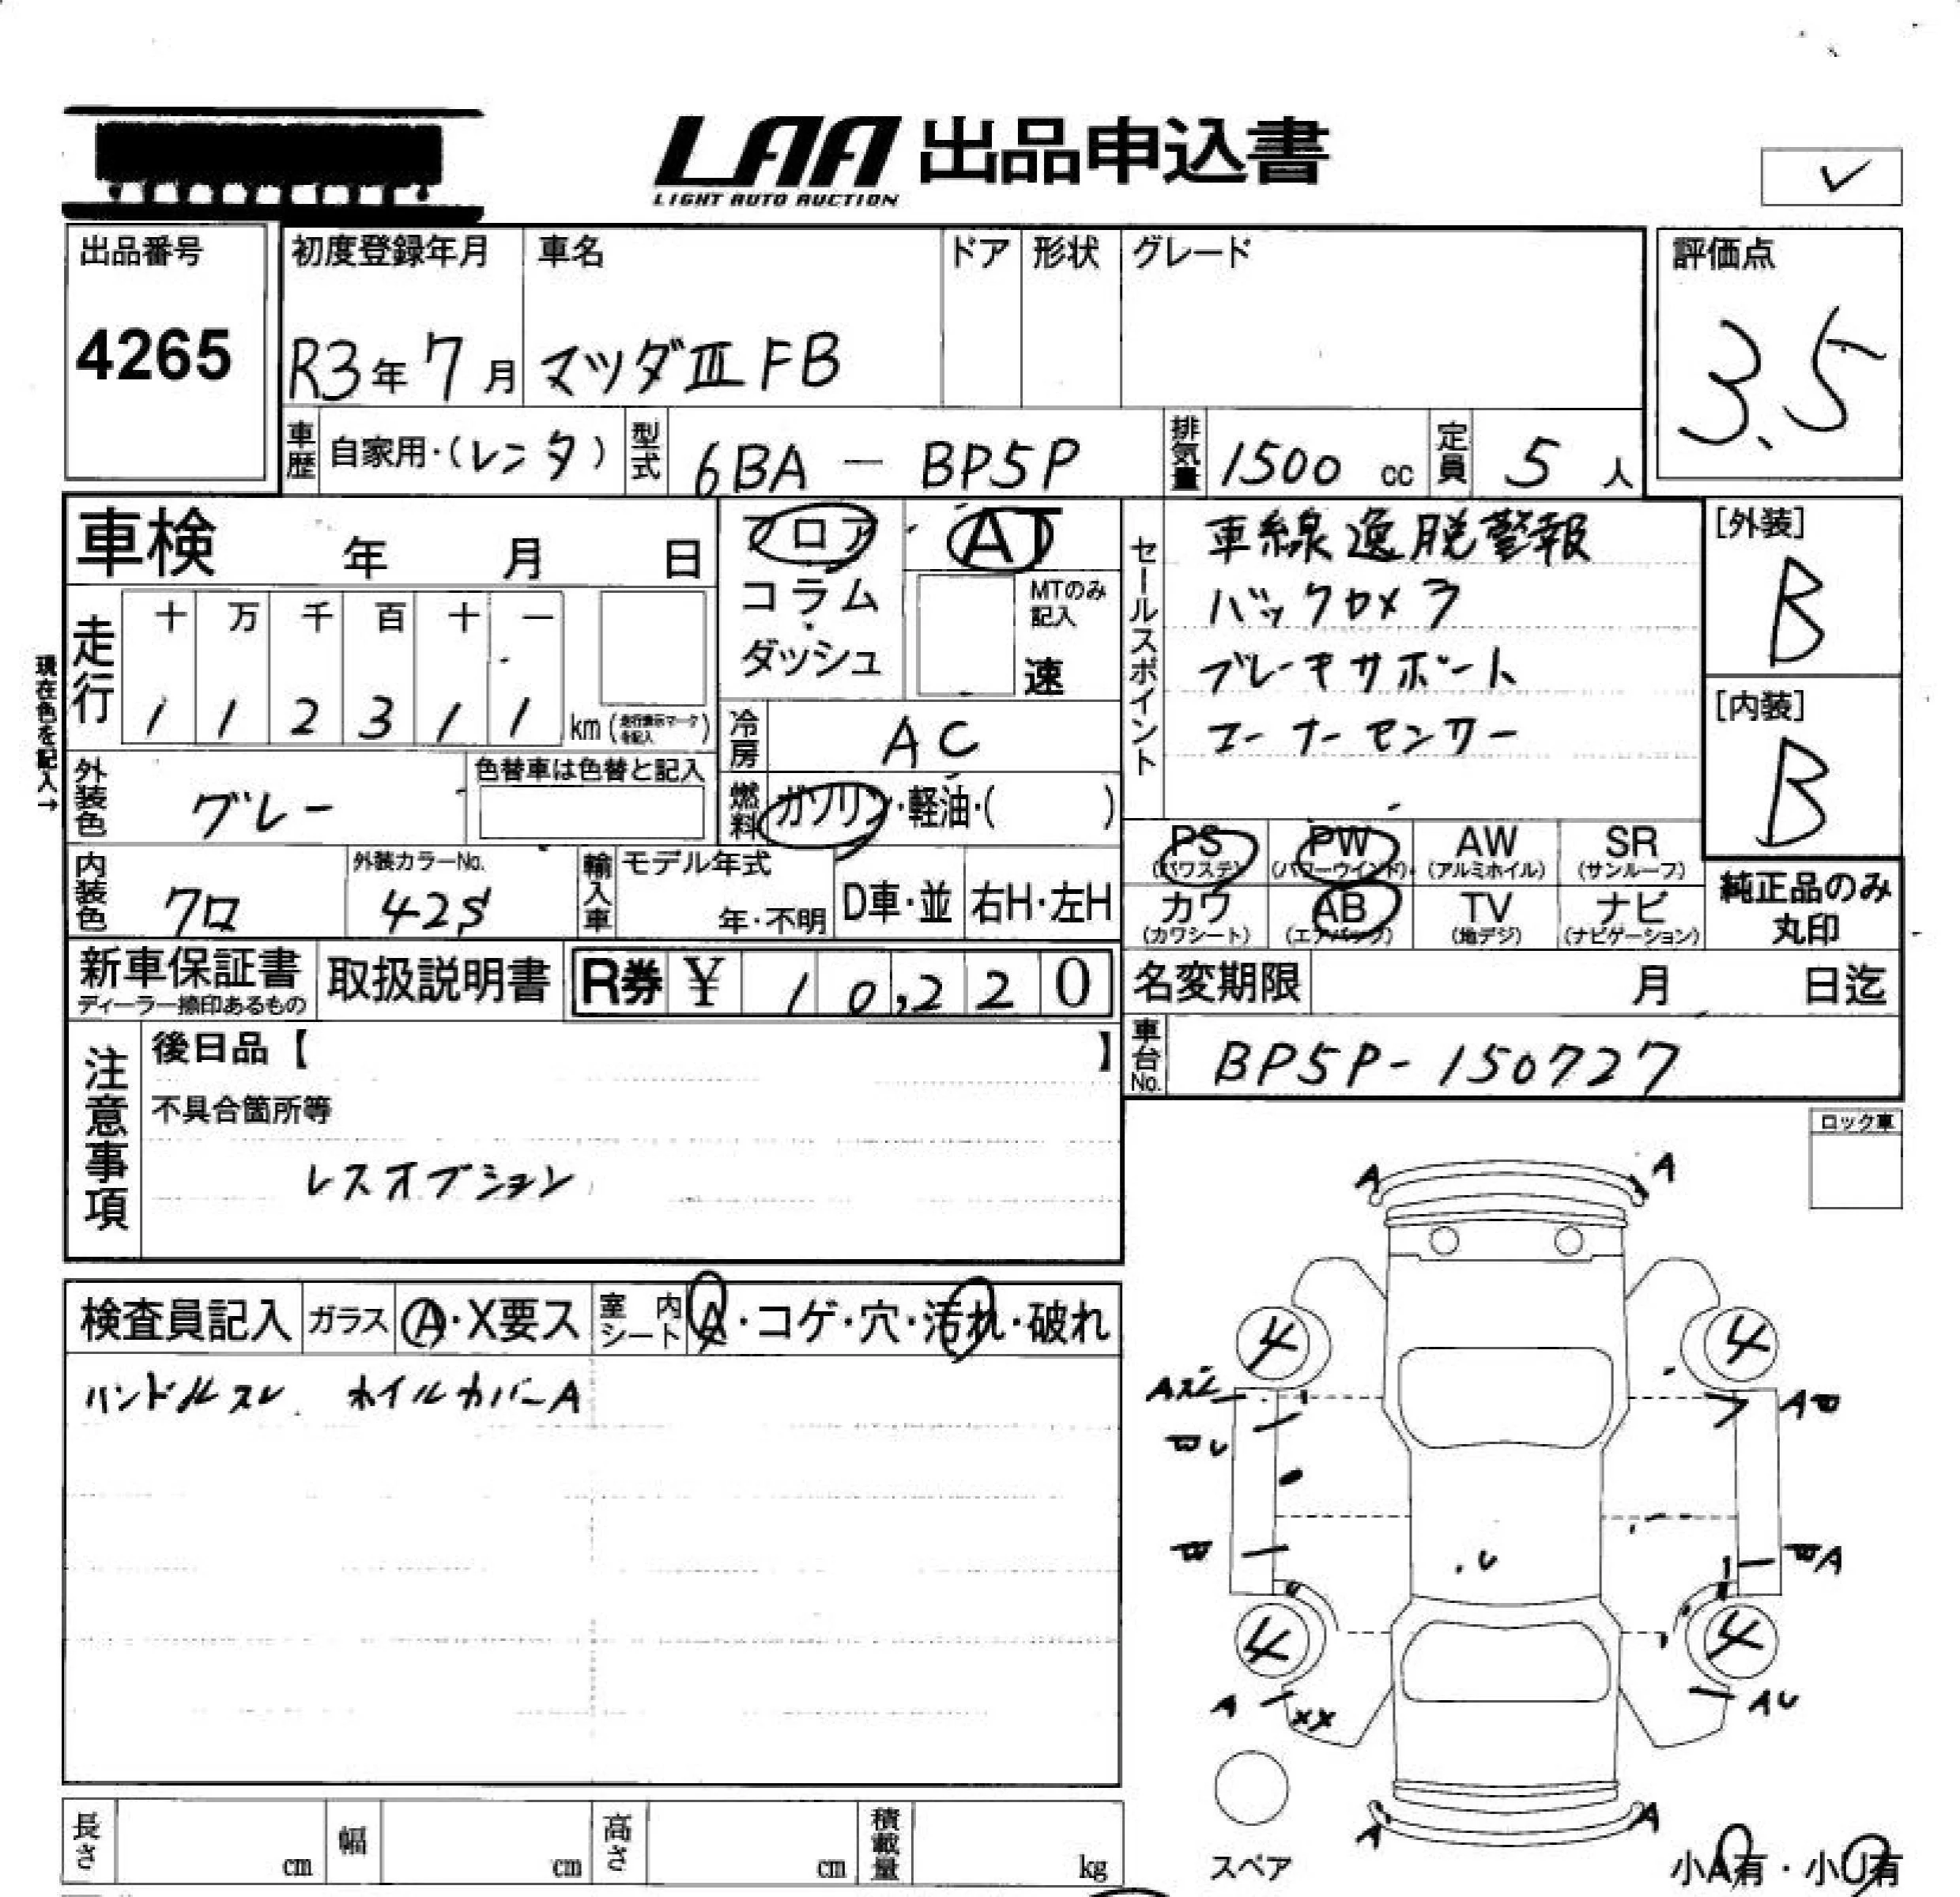 LAA 出品申込書
LIGHT AUTO AUCTION
出品番号
4265
初度登録年月
R3年7月
車名
マツダⅢ FB
ドア
形状
グレード
評価点
3.5
車歴
自家用・(レンタ)
型式
6BA — BP5P
排気量
1500 cc
定員
5人
車検 年 月 日
フロア
コラム
ダッシュ
AT
MTのみ記入
速
セールスポイント
車線逸脱警報
バックカメラ
ブレーキサポート
コーナーセンサー
[外装]
B
[内装]
B
現在色を記入→
走行
十 万 千 百 十 一
1 1 2 3 1 1 km (走行表示マークを記入)
冷房
AC
外装色
グレー
色替車は色替と記入
燃料
ガソリン・軽油・( )
PS (パワステ)
PW (パワーウインド)
AW (アルミホイル)
SR (サンルーフ)
カワ (カワシート)
AB (エアバック)
TV (地デジ)
ナビ (ナビゲーション)
純正品のみ
丸印
内装色
クロ
外装カラーNo.
42S
輸入車
モデル年式
年・不明
D車・並
右H・左H
新車保証書
ディーラー捺印あるもの
取扱説明書
R券 ¥ 10,220
名変期限 月 日迄
車台No.
BP5P-150727
注意事項
後日品【 】
不具合箇所等
レスオプション
ロック車
検査員記入
ガラス
A・X要ス
室内シート
A・コゲ・穴・汚れ・破れ
ハンドルスレ ホイルカバーA
A A
4 4
A
U
A
U
A
4 4
A
XX
AU
A A
スペア
小A有・小U有
長さ cm
幅 cm
高さ cm
積載量 kg